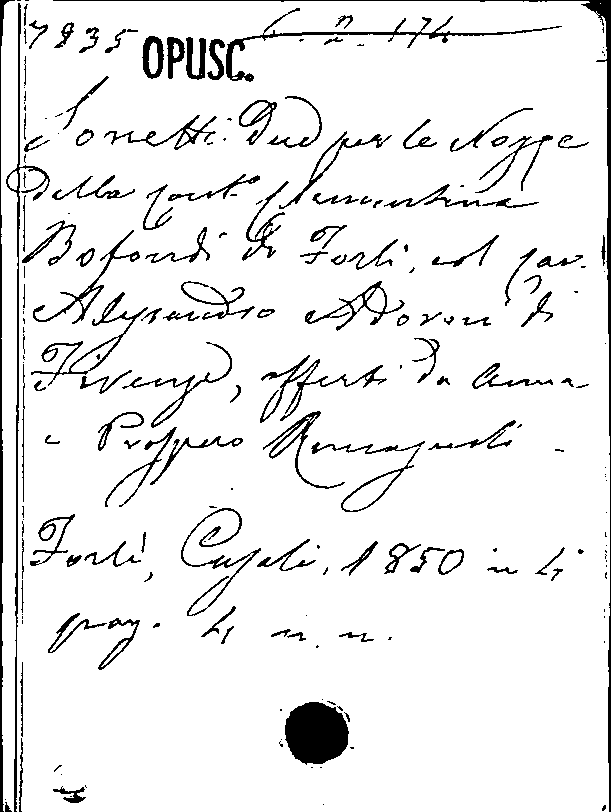 7835 OPUSC. 6. 2. 174
Sonetti Due per le Nozze
della Cont.a Clementina
Bofondi di Forlì, col Cav.
Alessandro Adorni di
Firenze, offerti da Anna
e Prospero Romagnoli -
Forlì, Casali, 1850 in 4°
pag. 4 n. n.